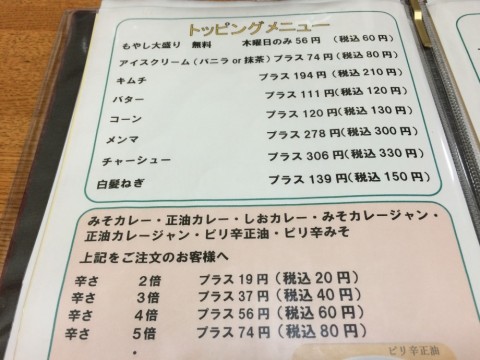 トッピングメニュー
もやし大盛り 無料 木曜日のみ 56円 (税込 60円)
アイスクリーム(バニラ or 抹茶) プラス 74円 (税込 80円)
キムチ プラス 194円 (税込 210円)
バター プラス 111円(税込 120円)
コーン プラス 120円 (税込 130円)
メンマ プラス 278円 (税込 300円)
チャーシュー プラス 306円(税込 330円)
白髪ねぎ プラス 139円 (税込 150円)
みそカレー・正油カレー・しおカレー・みそカレージャン・
正油カレージャン・ピリ辛正油・ピリ辛みそ
上記をご注文のお客様へ
辛さ 2倍 プラス 19円 (税込 20円)
辛さ 3倍 プラス 37円 (税込 40円)
辛さ 4倍 プラス 56円 (税込 60円)
辛さ 5倍 プラス 74円 (税込 80円)
・
ピリ辛正油